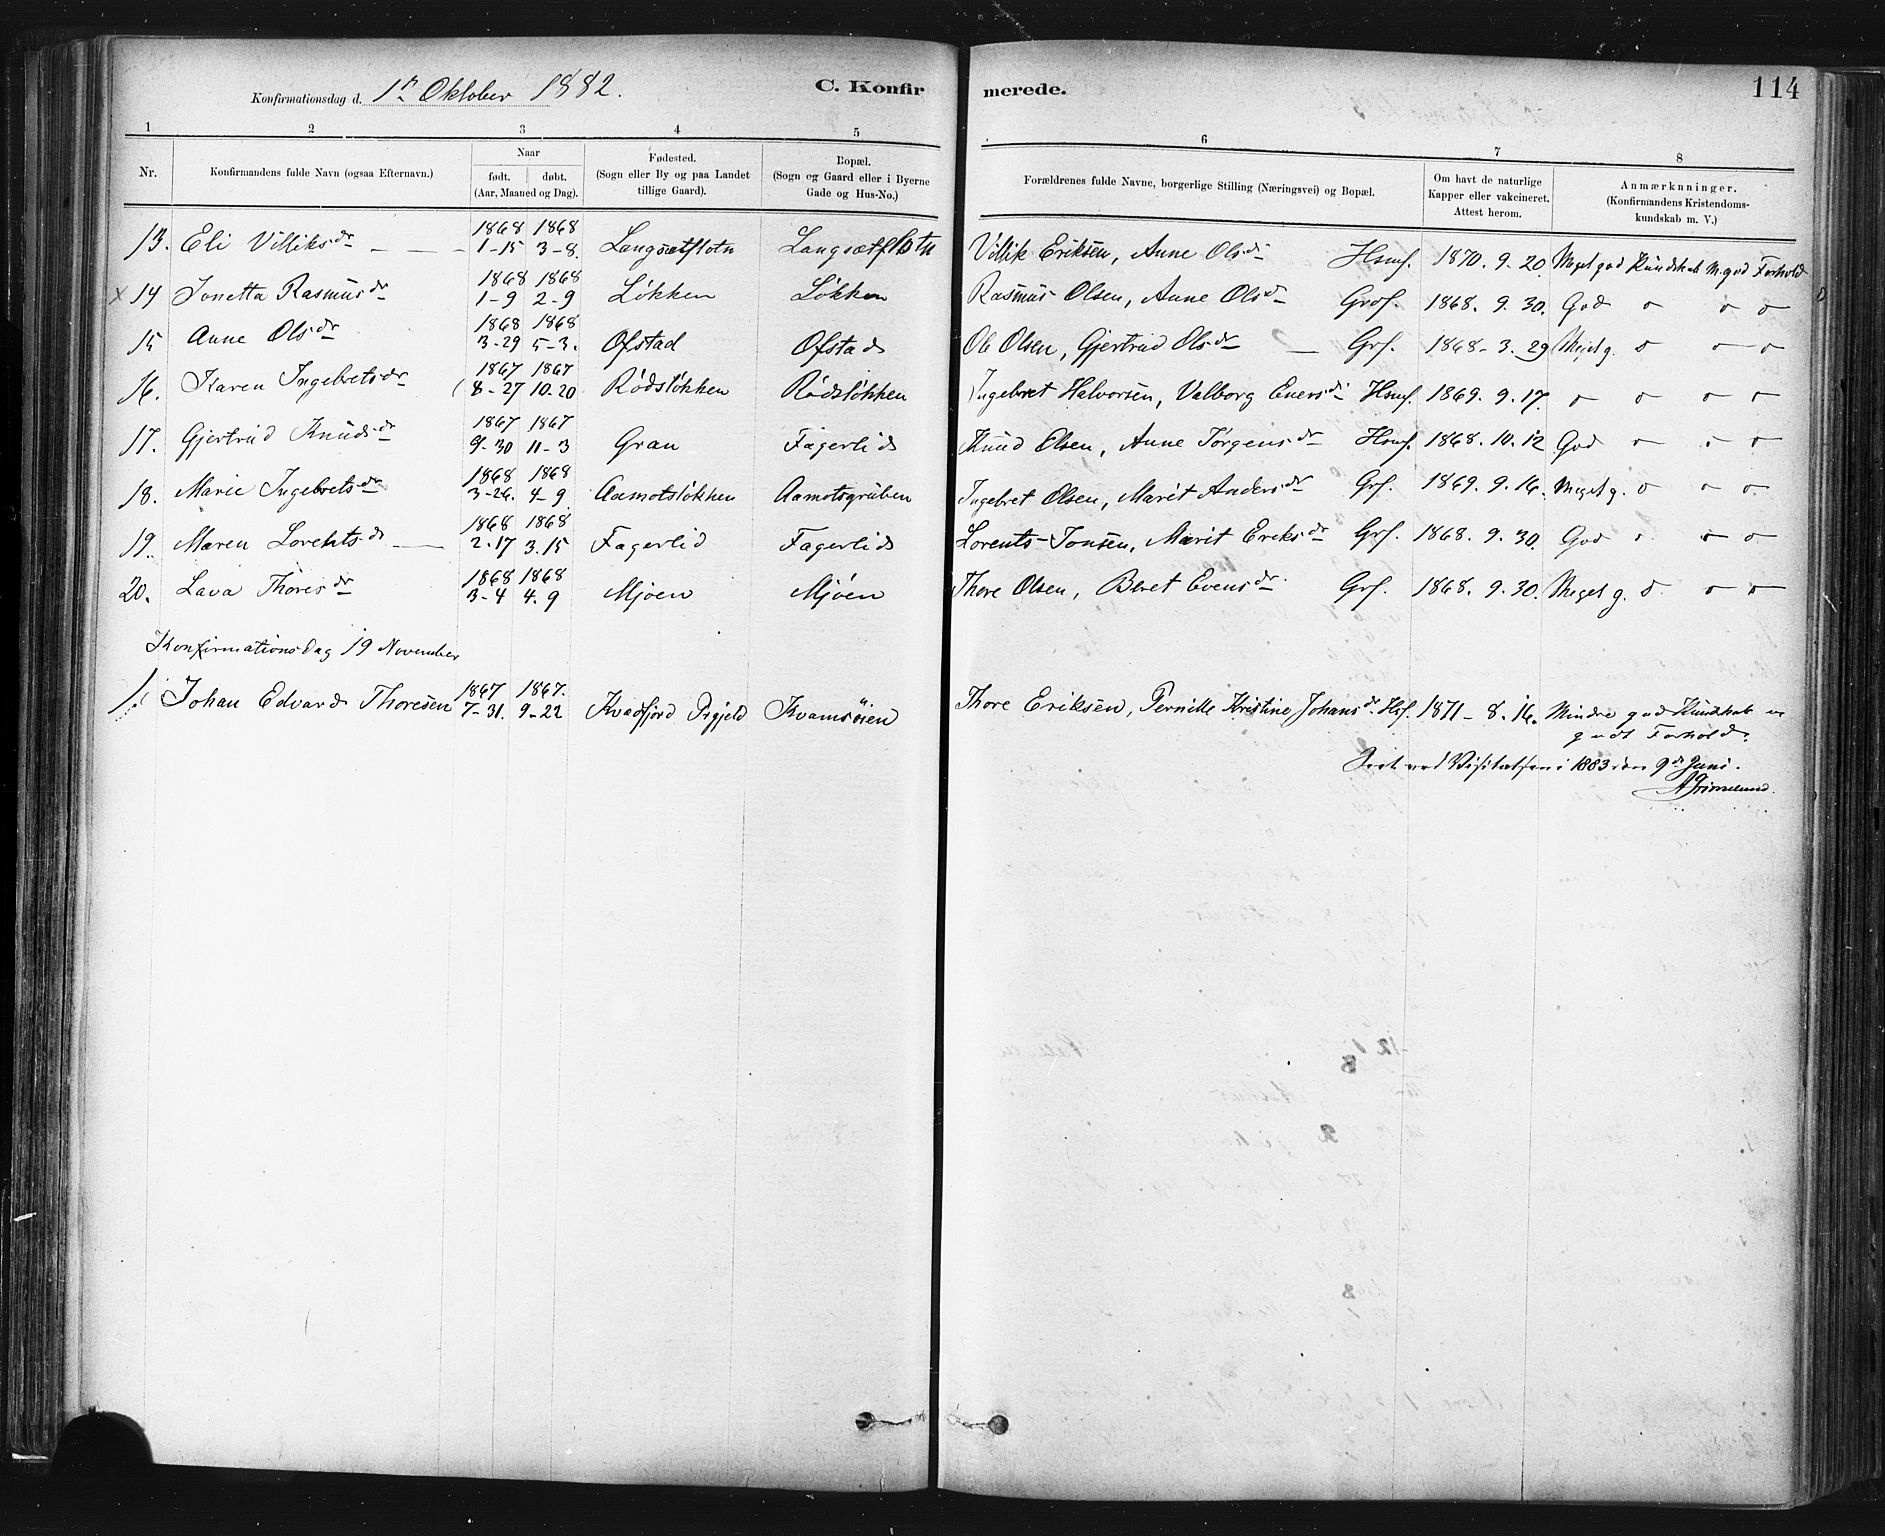 Konfirmationsdag d. 1ste Oktober 1882. C. Konfirmerede. 114
1 2 3 4 5 6 7 8
Nr. Konfirmandens fulde Navn (ogsaa Efternavn.) Naar født. døbt. (Aar, Maaned og Dag). Fødested. (Sogn eller By og paa Landet tillige Gaard). Bopæl. (Sogn og Gaard eller i Byerne Gade og Hus-No.) Forældrenes fulde Navne, borgerlige Stilling (Næringsvei) og Bopæl. Om havt de naturlige Kapper eller vakcineret. Attest herom. Anmærkninger. (Konfirmandens Kristendomskundskab m. V.)
13. Eli Villiksdr 1868 1-15 1868 3-8. Langsætflotn Langsætflotn Villik Eriksen, Anne Olsdr Hsmf. 1870. 9. 20 Meget god Kundskab m. god Forhold
x 14 Jonetta Rasmusdr 1868 1-9 1868 2-9 Løkken Løkken Rasmus Olsen, Anne Olsdr Grf. 1868. 9. 30. God " " "
15 Anne Olsdr 1868 3-29 1868 5-3. Ofstad Ofstad Ole Olsen, Gjertrud Olsdr Grf. 1868-3.29 Meget g. " " "
16. Karen Ingebretsdr 1867 8-27 1867 10-20 Rødsløkken Rødsløkken Ingebret Halvorsen, Valborg Enersdr Hsmf. 1869. 9. 17. " " " "
17. Gjertrud Knudsdr 1867 9-30 1867 11-3 Gran Fagerlid Knud Olsen, Anne Jørgensdr Hsmf. 1868. 10. 12 God " " "
18. Marie Ingebretsdr 1868 3-26. 1868 4-9 Aamotsløkken Aamotsgruben Ingebret Olsen, Marit Andersdr Grf. 1869. 9. 16. Meget g. " " "
19. Maren Lorentsdr 1868 2-17 1868 3.15 Fagerlid Fagerlid Lorents Jonsen, Marit Eriksdr Grf. 1868. 9. 30. God " " "
20. Lava Thoresdr 1868 3-4 1868 4.9 Mjøen Mjøen Thore Olsen, Beret Evensdr Grf. 1868. 9. 30. Meget g. " " "
Konfirmationsdag 19 November
1. Johan Edvard Thoresen 1867 7-31. 1867. 9-22 Kvædfjord Prgjeld Kvamsøien Thore Eriksen, Pernille Kristine Johansdr. Hsf. 1871-8.16. Mindre god Kundskab
godt Forhold.
Seet ved Visitatsen i 1883 den 9de Juni.
A Grimelund.